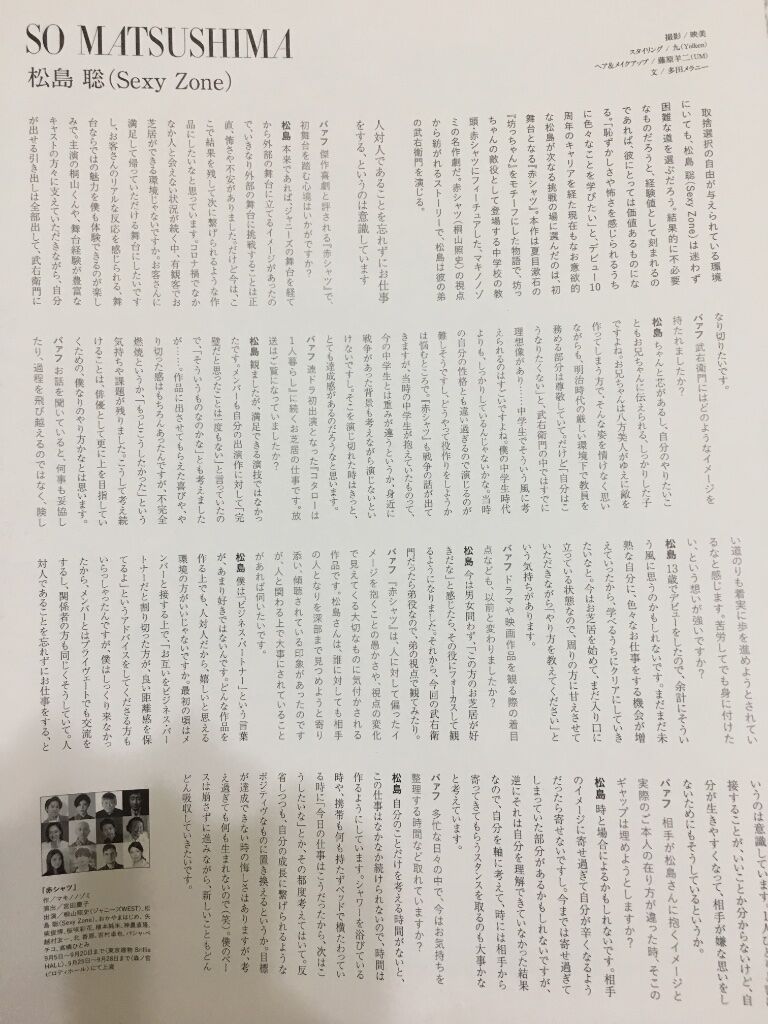 SO MATSUSHIMA
松島 聡（Sexy Zone）
撮影 / 映美
スタイリング / 九（Yolken）
ヘア&メイクアップ / 藤原羊二（UM）
文 / 多田メラニー
取捨選択の自由が与えられている環境
にいても、松島 聡（Sexy Zone）は迷わず
困難な道を選ぶだろう。結果的に不必要
なものだろうと、経験値として刻まれるの
であれば、彼にとっては価値あるものにな
る。「恥ずかしさや怖さを感じられるうち
に色々なことを学びたい」と、デビュー10
周年のキャリアを経た現在もなお意欲的
な松島が次なる挑戦の場に選んだのは、初
舞台となる『赤シャツ』。本作は夏目漱石の
『坊っちゃん』をモチーフにした物語で、坊っ
ちゃんの敵役として登場する中学校の教
頭・赤シャツにフィーチュアした、マキノノゾ
ミの名作劇だ。赤シャツ（桐山照史）の視点
から紡がれるストーリーで、松島は彼の弟
の武右衛門を演じる。
人対人であることを忘れずにお仕事
をする、というのは意識しています
バァフ 傑作喜劇と評される『赤シャツ』で、
初舞台を踏む心境はいかがですか？
松島 本来であれば、ジャニーズの舞台を経て
から外部の舞台に立てるイメージがあったの
で、いきなり外部の舞台に挑戦することは正
直、怖さや不安がありました。だけど今は、こ
こで結果を残して次に繋げられるような作
品にしたいなと思っています。コロナ禍でなか
なか人と会えない状況が続く中、有観客でお
芝居ができる環境じゃないですか。お客さんに
満足して帰っていただける舞台にしたいです
し、お客さんのリアルな反応を感じられる、舞
台ならではの魅力を僕も体験できるのが楽し
みで。主演の桐山くんや、舞台経験が豊富な
キャストの方々に支えていただきながら、自分
が出せる引き出しは全部出して、武右衛門に
なり切りたいです。
バァフ 武右衛門にはどのようなイメージを
持たれましたか？
松島 ちゃんと芯があるし、自分のやりたいこ
ともお兄ちゃんに伝えられる、しっかりした子
ですよね。お兄ちゃんは八方美人がゆえに敵を
作ってしまう方で、そんな姿を情けなく思い
ながらも、明治時代の厳しい環境下で教員を
務める部分は尊敬していて。だけど「自分はこ
うなりたくない」と、武右衛門の中ではすでに
理想像があり……中学生でそういう風に考
えられるのはすごいですよね。僕の中学生時代
よりも、しっかりしているんじゃないかな。当時
の自分の性格とも違い過ぎるので演じるのが
難しそうですし、どうやって役作りをしようか
は悩むところで。『赤シャツ』も戦争の話が出て
きますが、当時の中学生が抱えていたものって、
今の中学生とは重みが違うというか、身近に
戦争があった背景も考えながら演じないとい
けないですし。そこを演じ切れた時はきっと、
とても達成感があるのだろうなと思います。
バァフ 連ドラ初出演となった『コタローは
1人暮らし』に続くお芝居の仕事です。放
送はご覧になっていましたか？
松島 観ましたが、満足できる演技ではなかっ
たです。メンバーも自分の出演作に対して、「完
璧だと思ったことは一度もない」と言っていたの
で、「そういうものなのかな」とも考えました
が……。作品に出させてもらえた喜びや、や
り切った感はもちろんあったんですが、不完全
燃焼というか、「もっとこうしたかった」という
気持ちや課題が残りました。こうして考え続
けることは、俳優として更に上を目指してい
くための、僕なりのやり方かなとは思います。
バァフ お話を聞いていると、何事も妥協し
たり、過程を飛び越えるのではなく、険し
い道のりも着実に歩を進めようとされてい
るなと感じます。苦労してでも身に付けた
い、という想いが強いですか？
松島 13歳でデビューをしたので、余計にそうい
う風に思うのかもしれないです。まだまだ未
熟な自分に、色々なお仕事をする機会が増
えていったから、学べるうちにクリアにしていき
たいなと。今はお芝居を始めて、まだ入り口に
立っている状態なので、周りの方に甘えさせて
いただきながら「やり方を教えてください」と
いう気持ちがあります。
バァフ ドラマや映画作品を観る際の着目
点なども、以前と変わりましたか？
松島 今は男女問わず、「この方のお芝居が好
きだな」と感じたら、その役にフォーカスして観
るようになりました。それから、今回の武右衛
門だったら弟役なので、弟の視点で観てみたり。
バァフ 『赤シャツ』は、人に対して偏ったイ
メージを抱くことの愚かさや、視点の変化
で見えてくる大切なものに気付かされる
作品です。松島さんは、誰に対しても相手
の人となりを深部まで見つめようと寄り
添い、傾聴されている印象があったのです
が、人と関わる上で大事にされていること
があれば伺いたいです。
松島 僕は「ビジネス・パートナー」という言葉
が、あまり好きではないんです。どんな作品を
作る上でも、人対人だから、嬉しいと思える
環境の方がいいじゃないですか。最初の頃はメ
ンバーと接する上で、「お互いをビジネス・パー
トナーだと割り切った方が、良い距離感を保
てるよ」というアドバイスをしてくださる方も
いらっしゃったんですが、僕はしっくり来なかっ
たから、メンバーとはプライヴェートでも交流を
するし、関係者の方も同じくそうしていて。人
対人であることを忘れずにお仕事をする、と
いうのは意識しています。1人ひとりと
接することが、いいことか分からないけど、自
分が生きやすくなって、相手が嫌な思いをし
ないためにもそうしているというか。
バァフ 相手が松島さんに抱くイメージと
実際のご本人の在り方が違った時、そこの
ギャップは埋めようとしますか？
松島 時と場合によるかもしれないです。相手
のイメージに寄せ過ぎて自分が辛くなるよう
だったら寄せないですし。今までは寄せ過ぎて
しまっていた部分があるかもしれないですが、
逆にそれは自分を理解できていなかった結果
なので、自分を軸に考えて、時には相手から
寄ってきてもらうスタンスを取るのも大事かな
と考えています。
バァフ 多忙な日々の中で、今はお気持ちを
整理する時間など取れていますか？
松島 自分のことだけを考える時間がないと、
この仕事はなかなか続けられないので、時間は
作るようにしています。シャワーを浴びている
時や、携帯も何も持たずベッドで横たわってい
る時に「今日の仕事はこうだったから、次はこ
うしたいな」とか、その都度考えてはいて。反
省しつつも、自分の成長に繋げられるような
ポジティヴなものに置き換えるというか。目標
が達成できない時の悔しさはありますが、考
え過ぎても何も生まれないので（笑）。僕のペー
スは崩さずに進みながら、新しいこともどん
どん吸収していきたいです。
『赤シャツ』
作／マキノノゾミ
演出／宮田慶子
出演／桐山照史（ジャニーズWEST）、松
島 聡（Sexy Zone）、
9月5日〜9月20日まで〈東京建物 Brillia
HALL〉、9月25日〜9月28日まで〈森ノ宮
ピロティホール〉にて上演